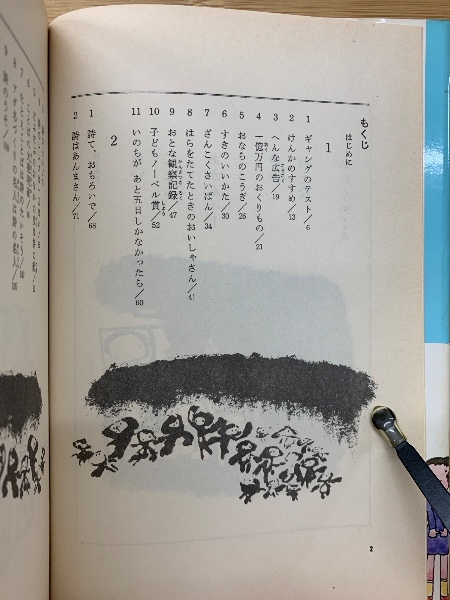 もくじ
はじめに
1
1 ギャングのテスト/6
2 けんかのすすめ/13
3 へんな広告/19
4 一億万円のおくりもの/21
5 おなちのこうぎ/26
6 すきのいいかた/30
7 ざんこくさいばん/34
8 はらをたてたときのおいしゃさん/41
9 おとな観察記録/47
10 子どもノーベル賞/52
11 いのちが あと五日しかなかったら/60
2
1 詩て、おもろいで/68
2 詩はあんまさん/71
2